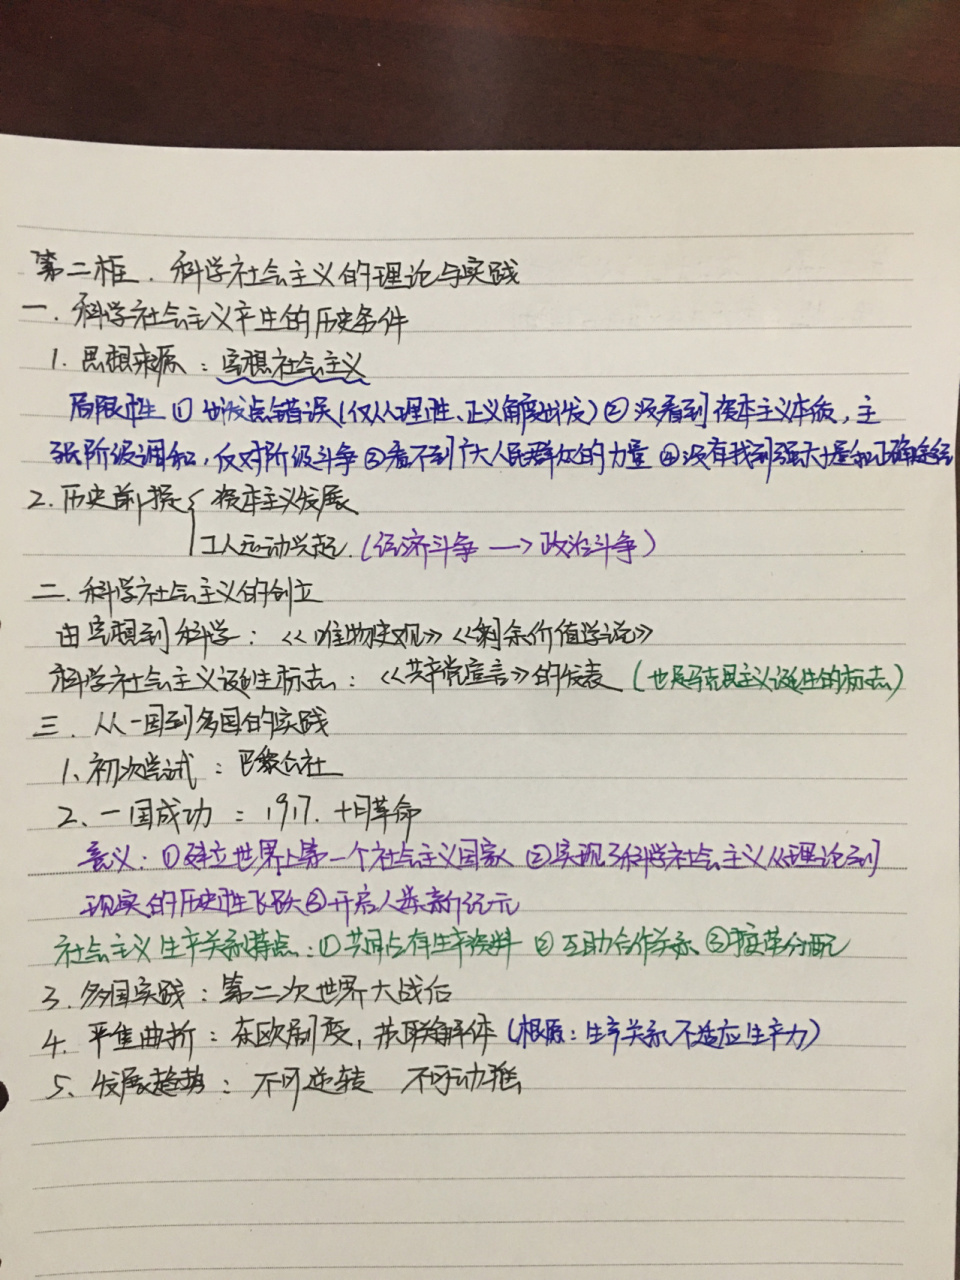 第二框.科学社会主义的理论与实践
一.科学社会主义产生的历史条件
1.思想来源:空想社会主义
局限性 ①出发点错误(仅从理性、正义角度出发)②没看到资本主义本质,主
张阶级调和,反对阶级斗争③看不到广大人民群众的力量④没有找到强大力量和正确途径
2.历史前提{资本主义发展
工人运动兴起.(经济斗争→政治斗争)
二.科学社会主义的创立
由空想到科学:《唯物史观》《剩余价值学说》
科学社会主义诞生标志:《共产党宣言》的发表(也是马克思主义诞生的标志)
三.从一国到多国的实践
1、初次尝试:巴黎公社
2、一国成功:1917.十月革命
意义:①建立世界上第一个社会主义国家 ②实现了科学社会主义从理论到
现实的历史性飞跃③开启人类新纪元
社会主义生产关系特点:①共同占有生产资料 ②互助合作关系 ③按劳分配
3.多国实践:第二次世界大战后
4.曲折:东欧剧变,苏联解体(根源:生产关系不适应生产力)
5、发展趋势:不可逆转 不可动摇